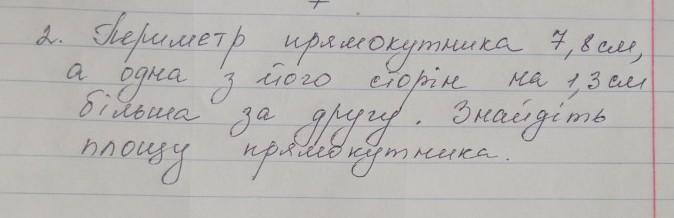 2. Периметр прямокутника 7,8 см,
а одна з його сторін на 1,3 см
більша за другу. Знайдіть
площу прямокутника.